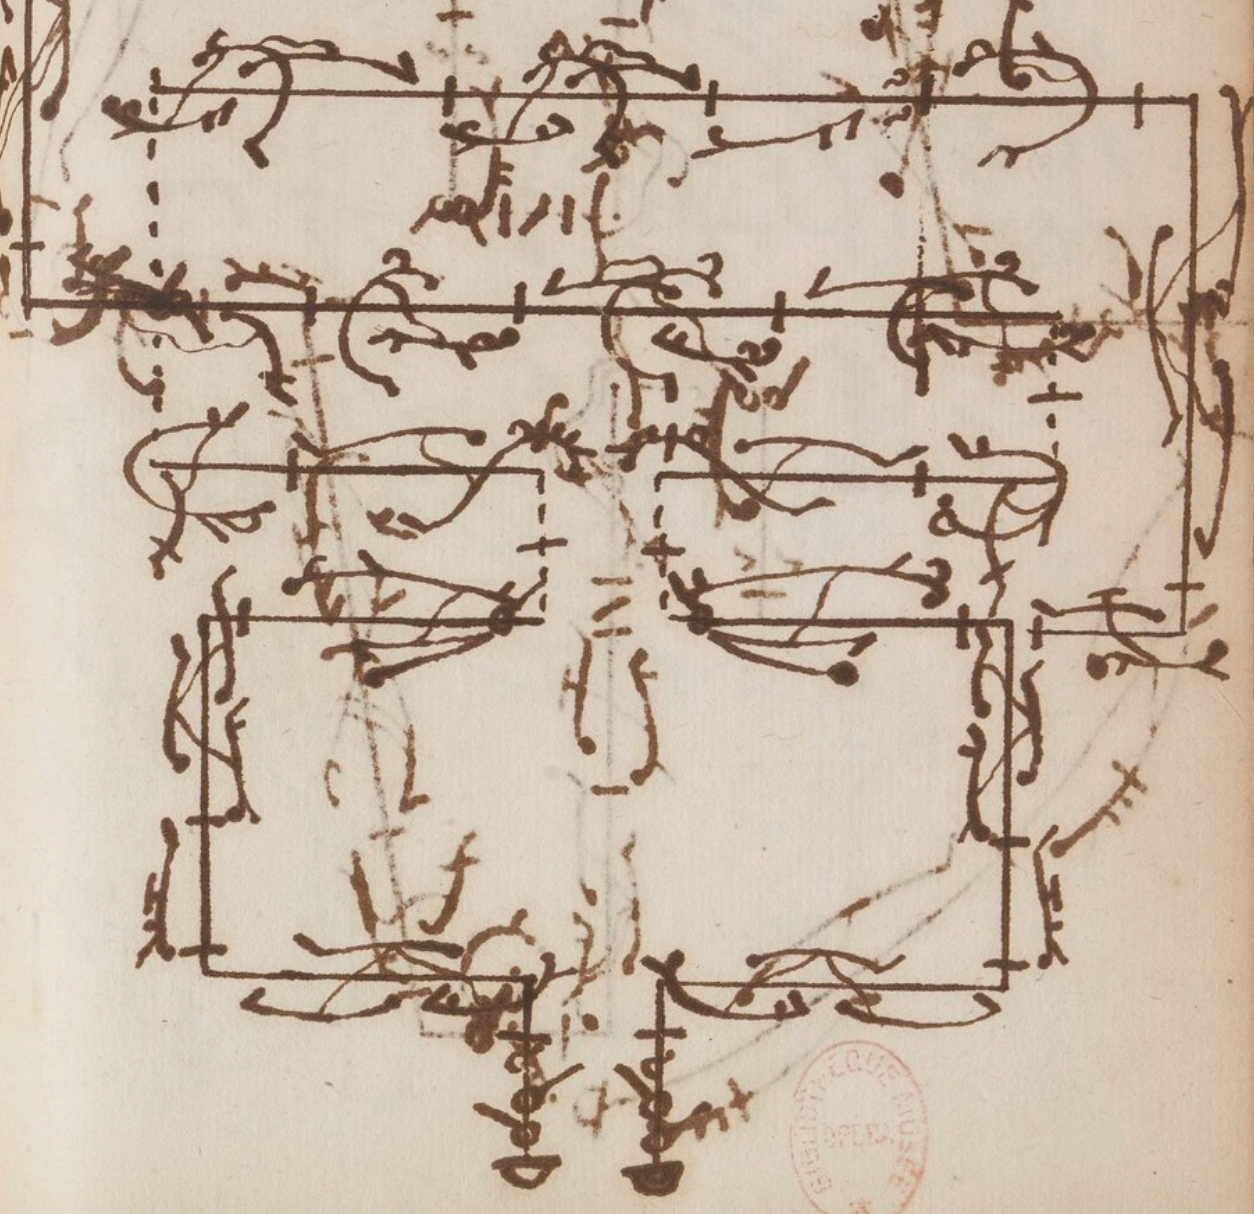 BIBLIOTHÈQUE MUSÉE
OPERA